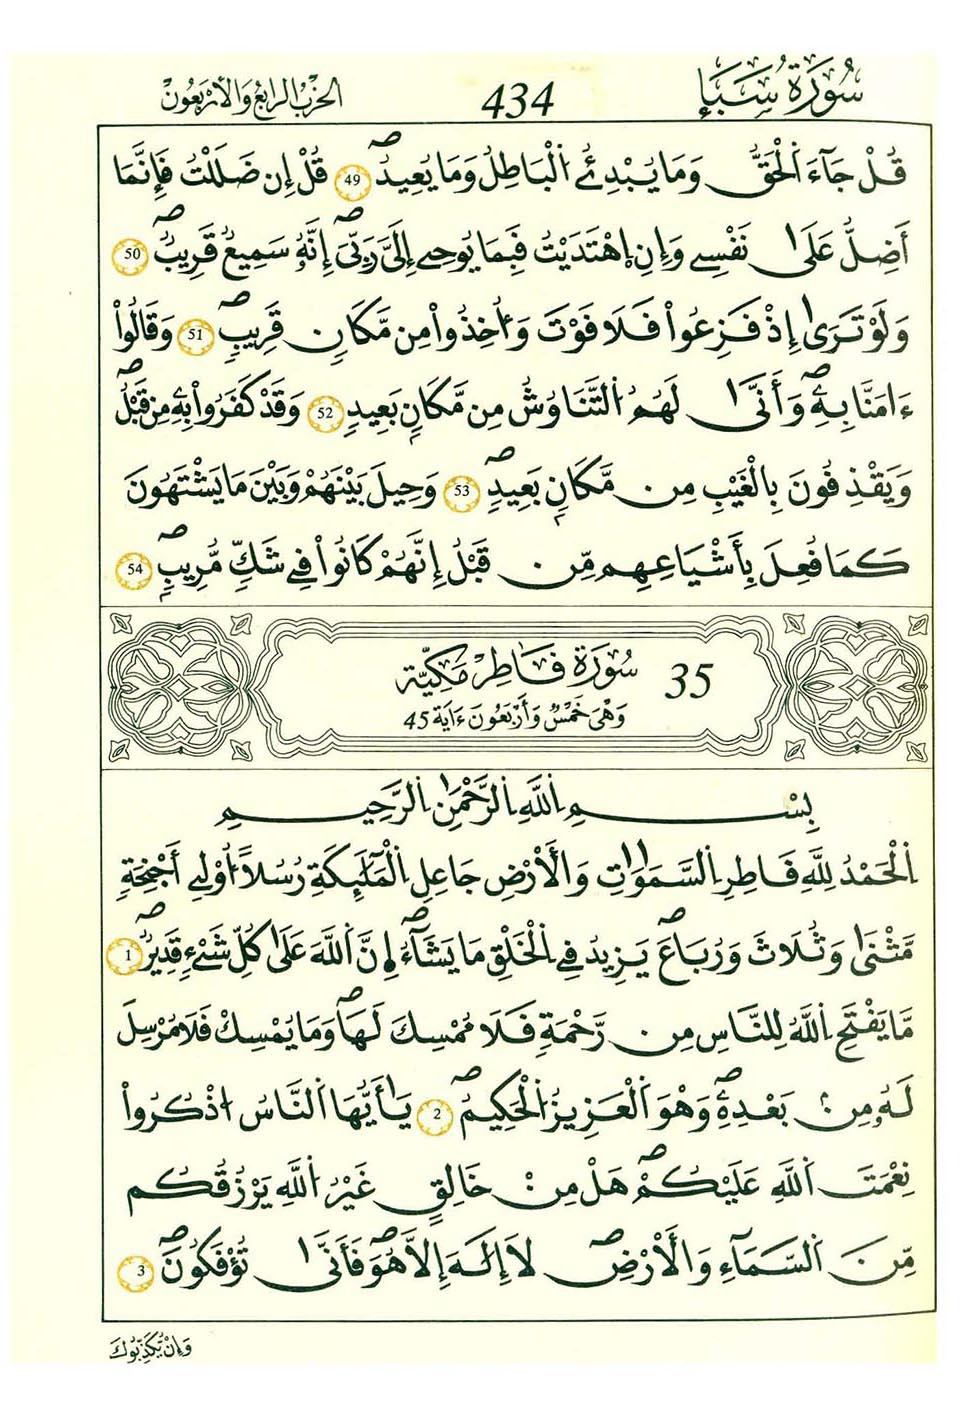 سُورَةُ سَبَإٍ 434 الحِزْبُ الرَّابِعُ وَالأَرْبَعُونَ
قُلْ جَآءَ اَ۬لْحَقُّ وَمَا يُبْدِئُ اُ۬لْبَاطِلُ وَمَا يُعِيدُۖ 49 قُلْ إِن ضَلَلْتُ فَإِنَّمَا
أَضِلُّ عَلَىٰ نَفْسِے وَإِنِ اِ۪هْتَدَيْتُ فَبِمَا يُوحِےٓ إِلَىَّ رَبِّىَۖ إِنَّهُۥ سَمِيعٌ قَرِيبٌۖ 50
وَلَوْ تَرَىٰٓ إِذْ فَزِعُواْ فَلَا فَوْتَ وَأُخِذُواْ مِن مَّكَانٍ قَرِيبٍۖ 51 وَقَالُوٓاْ
ءَامَنَّا بِهِۦۖ وَأَنَّىٰ لَهُمُ اُ۬لتَّنَاوُشُ مِن مَّكَانِۢ بَعِيدٍ 52 وَقَدْ كَفَرُواْ بِهِۦ مِن قَبْلُۖ
وَيَقْذِفُونَ بِالْغَيْبِ مِن مَّكَانِۢ بَعِيدٍۖ 53 وَحِيلَ بَيْنَهُمْ وَبَيْنَ مَا يَشْتَهُونَ
كَمَا فُعِلَ بِأَشْيَاعِهِم مِّن قَبْلُ إِنَّهُمْ كَانُواْ فِے شَكٍّ مُّرِيبِۢۖ 54
35 سُورَةُ فَاطِرٍ مَكِّيَّة
وَهْىَ خَمْسٌ وَأَرْبَعُونَ ءَايَة 45
بِسْمِ اِ۬للَّهِ اِ۬لرَّحْمَٰنِ اِ۬لرَّحِيمِ
اِ۬لْحَمْدُ لِلَّهِ فَاطِرِ اِ۬لسَّمَٰوَٰتِ وَالْأَرْضِ جَاعِلِ اِ۬لْمَلَٰٓئِكَةِ رُسُلاً ا۟وْلِےٓ أَجْنِحَةٍ
مَّثْنَىٰ وَثُلَاثَ وَرُبَاعَۖ يَزِيدُ فِے اِ۬لْخَلْقِ مَا يَشَآءُۖ إِنَّ اَ۬للَّهَ عَلَىٰ كُلِّ شَےْءٍ قَدِيرٌۖ 1
مَّا يَفْتَحِ اِ۬للَّهُ لِلنَّاسِ مِن رَّحْمَةٍ فَلَا مُمْسِكَ لَهَاۖ وَمَا يُمْسِكْ فَلَا مُرْسِلَ
لَهُۥ مِنۢ بَعْدِهِۦۖ وَهْوَ اَ۬لْعَزِيزُ اُ۬لْحَكِيمُۖ 2 يَٰٓأَيُّهَا اَ۬لنَّاسُ اُ۟ذْكُرُواْ
نِعْمَتَ اَ۬للَّهِ عَلَيْكُمْۖ هَلْ مِنْ خَالِقٍ غَيْرُ اُ۬للَّهِ يَرْزُقُكُم
مِّنَ اَ۬لسَّمَآءِ وَالْأَرْضِۖ لَآ إِلَٰهَ إِلَّا هُوَۖ فَأَنَّىٰ تُؤْفَكُونَۖ 3
وَإِنْ يُّكَذِّبُوكَ